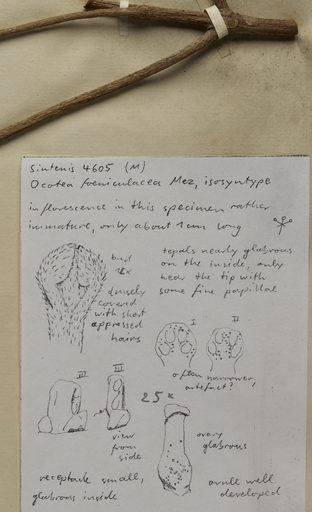 Sintenis 4605 (M)
Ocotea foeniculacea Mez, isosyntype
inflorescence in this specimen rather
immature, only about 1 cm long
bud
12x
densely
covered
with short
appressed
hairs
tepals nearly glabrous
on the inside, only
near the tip with
some fine papillae
I
II
often narrower,
artefact?
III
III
25x
view
from
side
ovary
glabrous
receptacle small,
glabrous inside
ovule well
developed